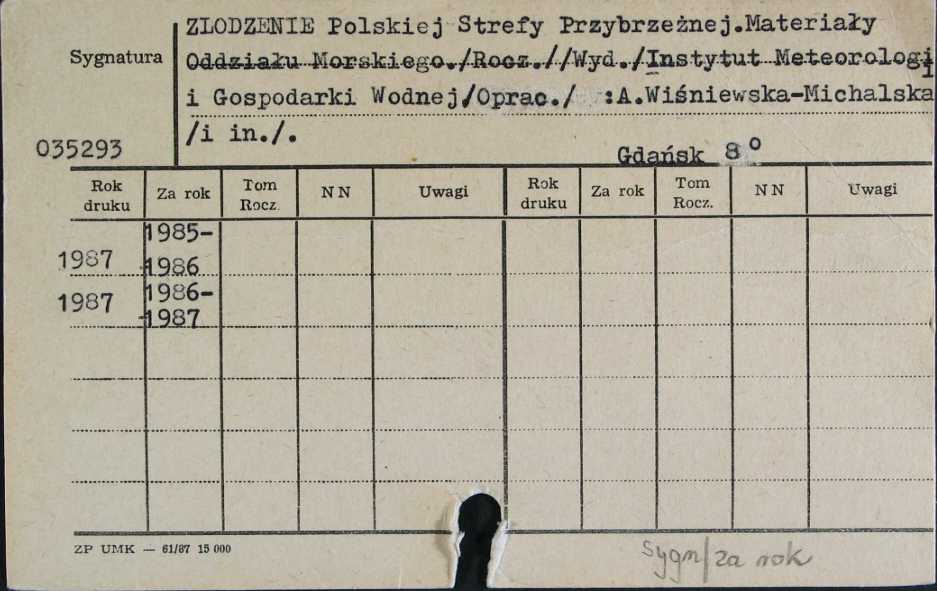 ZLODZENIE Polskiej Strefy Przybrzeżnej.Materiały
Sygnatura
Oddziału Morskiego./Rocz.//Wyd./Instytut Meteorologi
i
i Gospodarki Wodnej/Oprac./ :A.Wiśniewska-Michalska
/i in./.
035293
Gdańsk 8°
Rok druku Za rok Tom Rocz. NN Uwagi Rok druku Za rok Tom Rocz. NN Uwagi
1985-
1987 1986
1986-
1987
1987
ZP UMK — 61/87 15 000
sygn/za rok